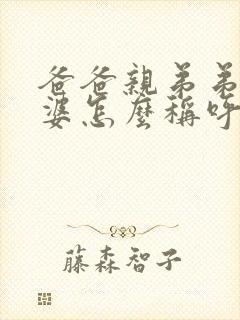 爸爸親弟弟
婆怎麼稱呼
藤森智子